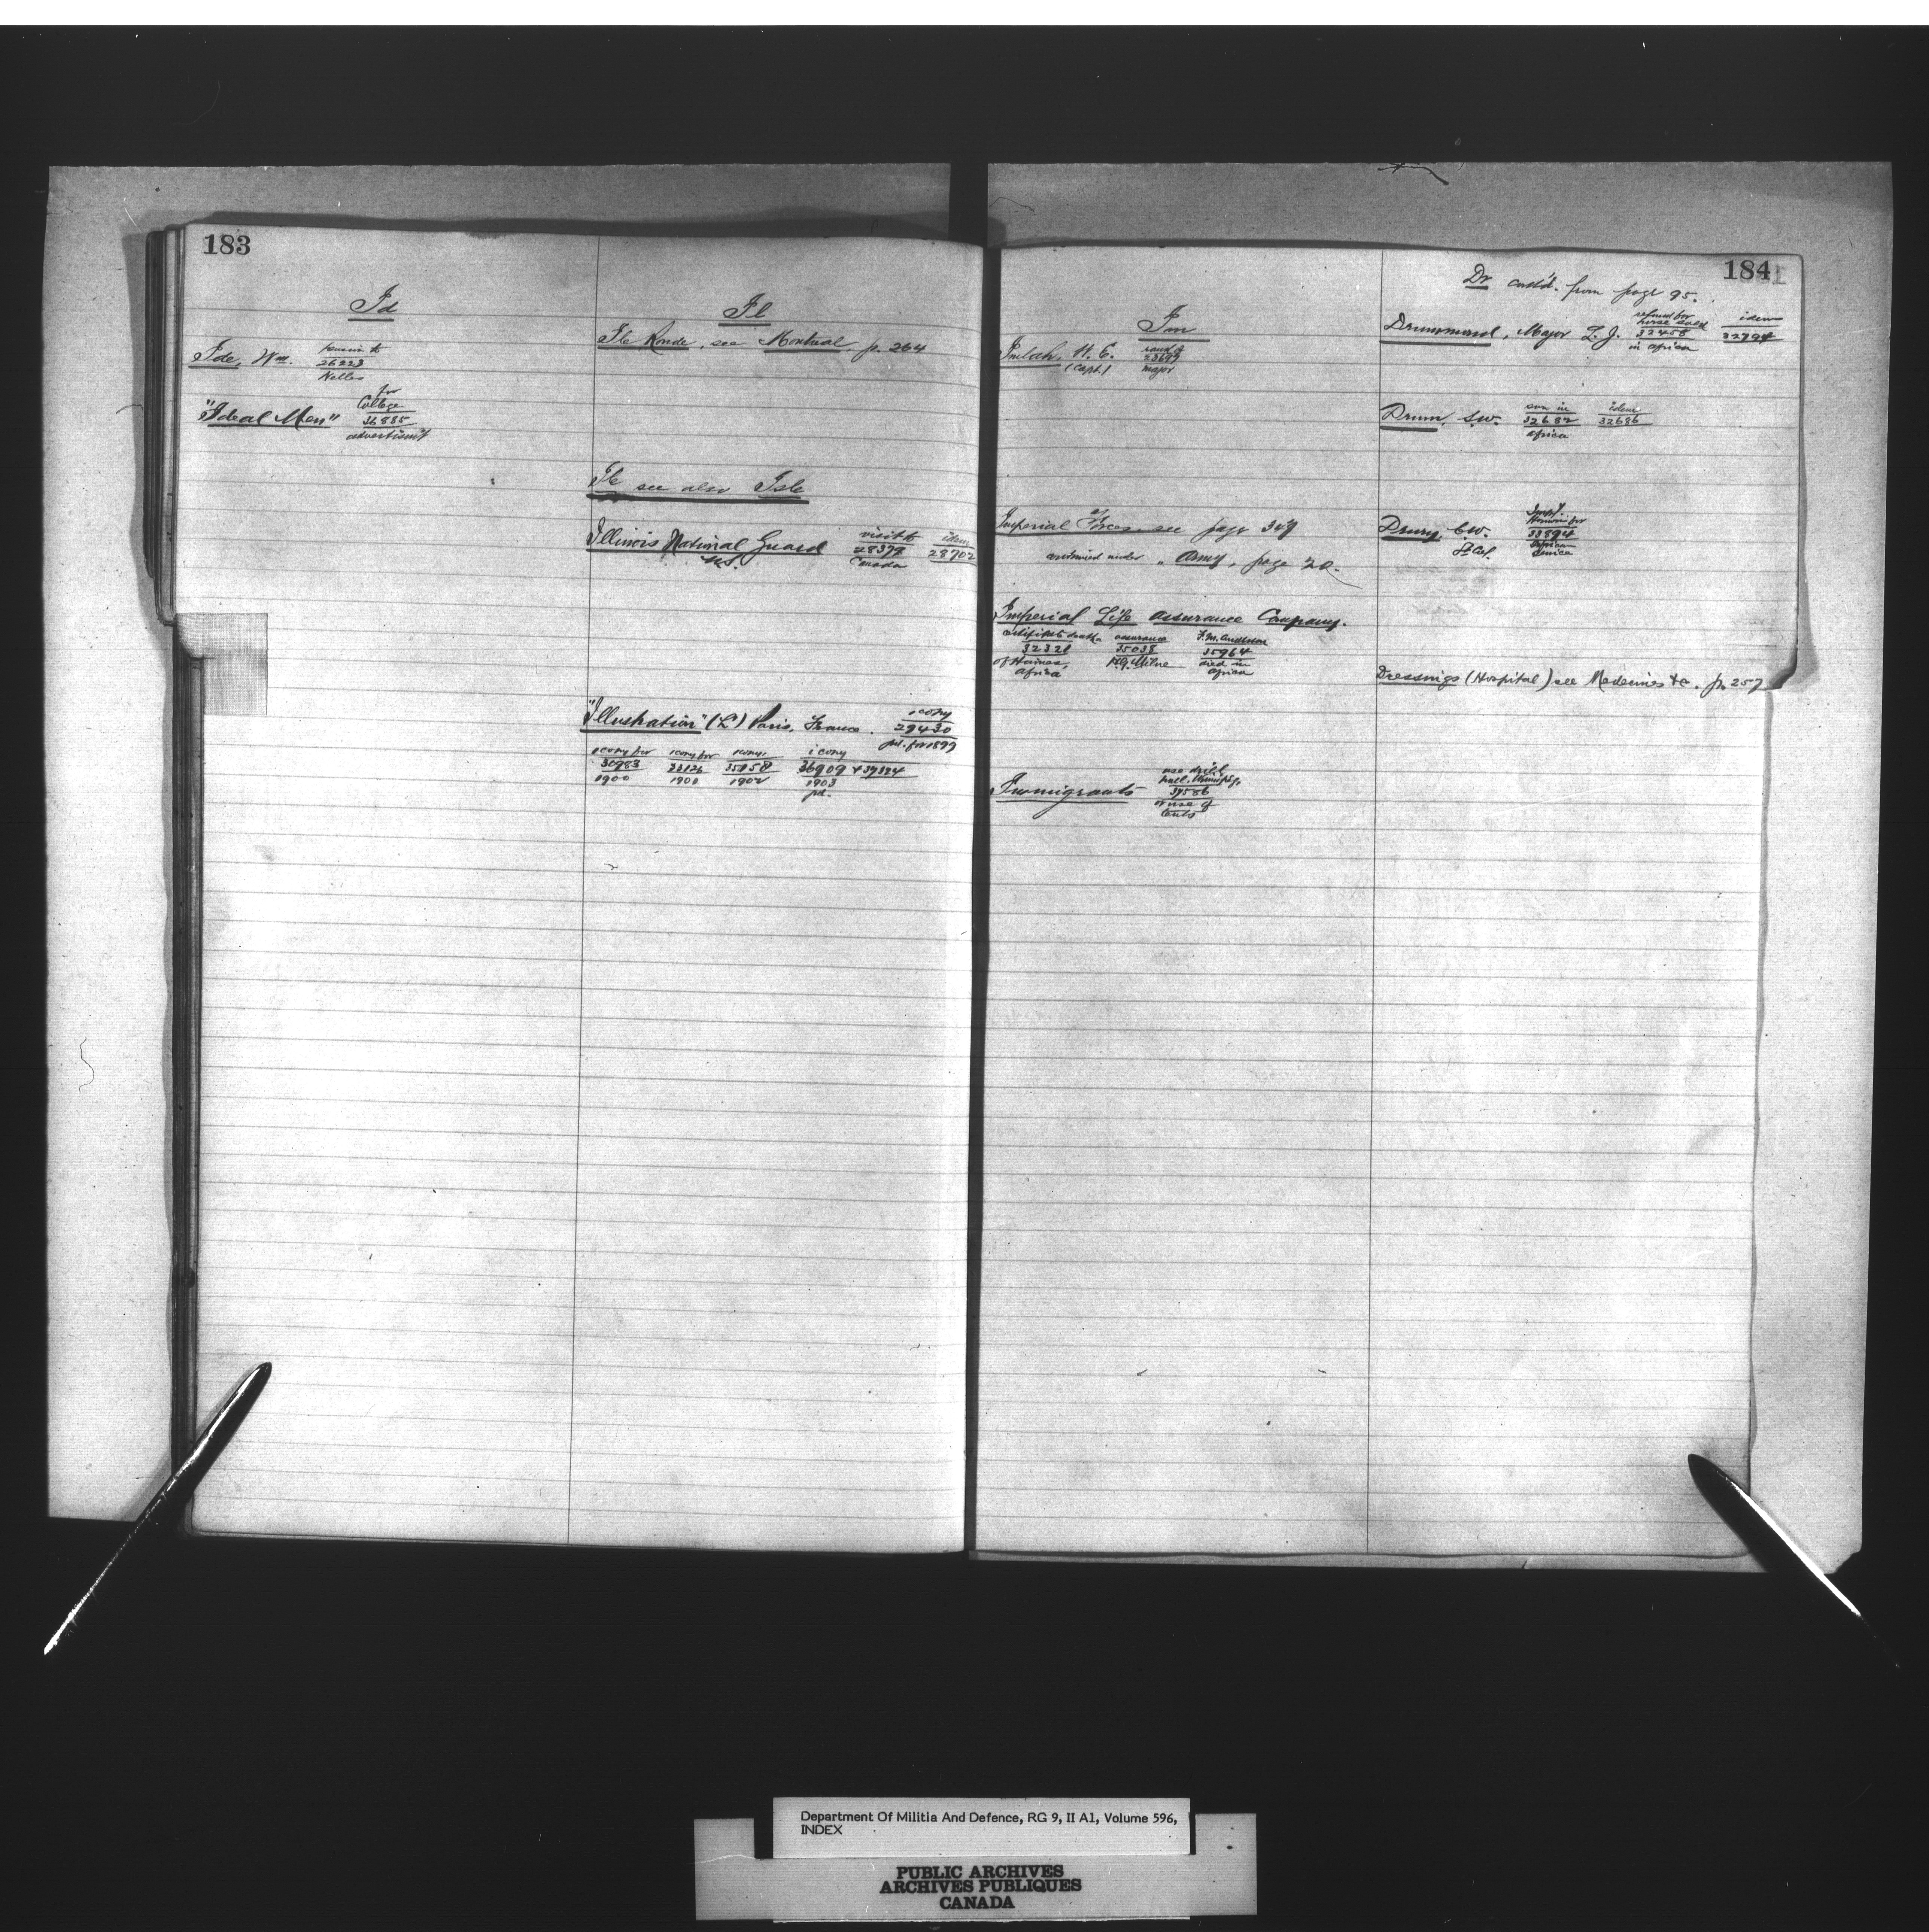 183
Id
Ide, Wm.
26223
Nelles
"Ideal Men"
for
College
36885
advertism't
Il
Ile Ronde, see Montreal, p. 264
Ile see also Isle
Illinois National Guard
U.S.
visit to
28379
Canada
idem
28702
"Illustration" (L') Paris, France.
1 copy
29430
pd. for 1899
1 copy for
30983
1900
1 copy for
1900
1 copy
1902
1 copy
36909 & 39324
1903
pd.
184
Im
Imlah, H. C.
(Capt.)
rank of
major
Imperial Forces see page 347
continued under " Army, page 20.
Imperial Life Assurance Company.
certificate death
32321
of Haines,
Africa
assurance
35038
Milne
35964
died in
Africa
Immigrants
use drill
hall, Winnipeg,
39586
or use of
tents
Dr cont'd. from page 95.
Drummond, Major L. J.
refund for
horse sold
32458
in Africa
idem
32794
Drum, S.W.
son in
32682
Africa
idem
32686
Drury, C.W.
Lt Col.
33894
Africa
service
Dressings (Hospital) see Medecines &c. p. 257
Department Of Militia And Defence, RG 9, II A1, Volume 596,
INDEX
PUBLIC ARCHIVES
ARCHIVES PUBLIQUES
CANADA